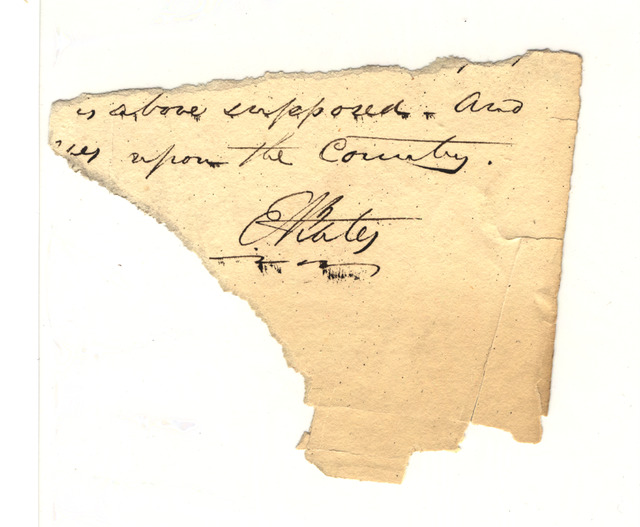 is above supposed. And
upon the Country.
E Bates